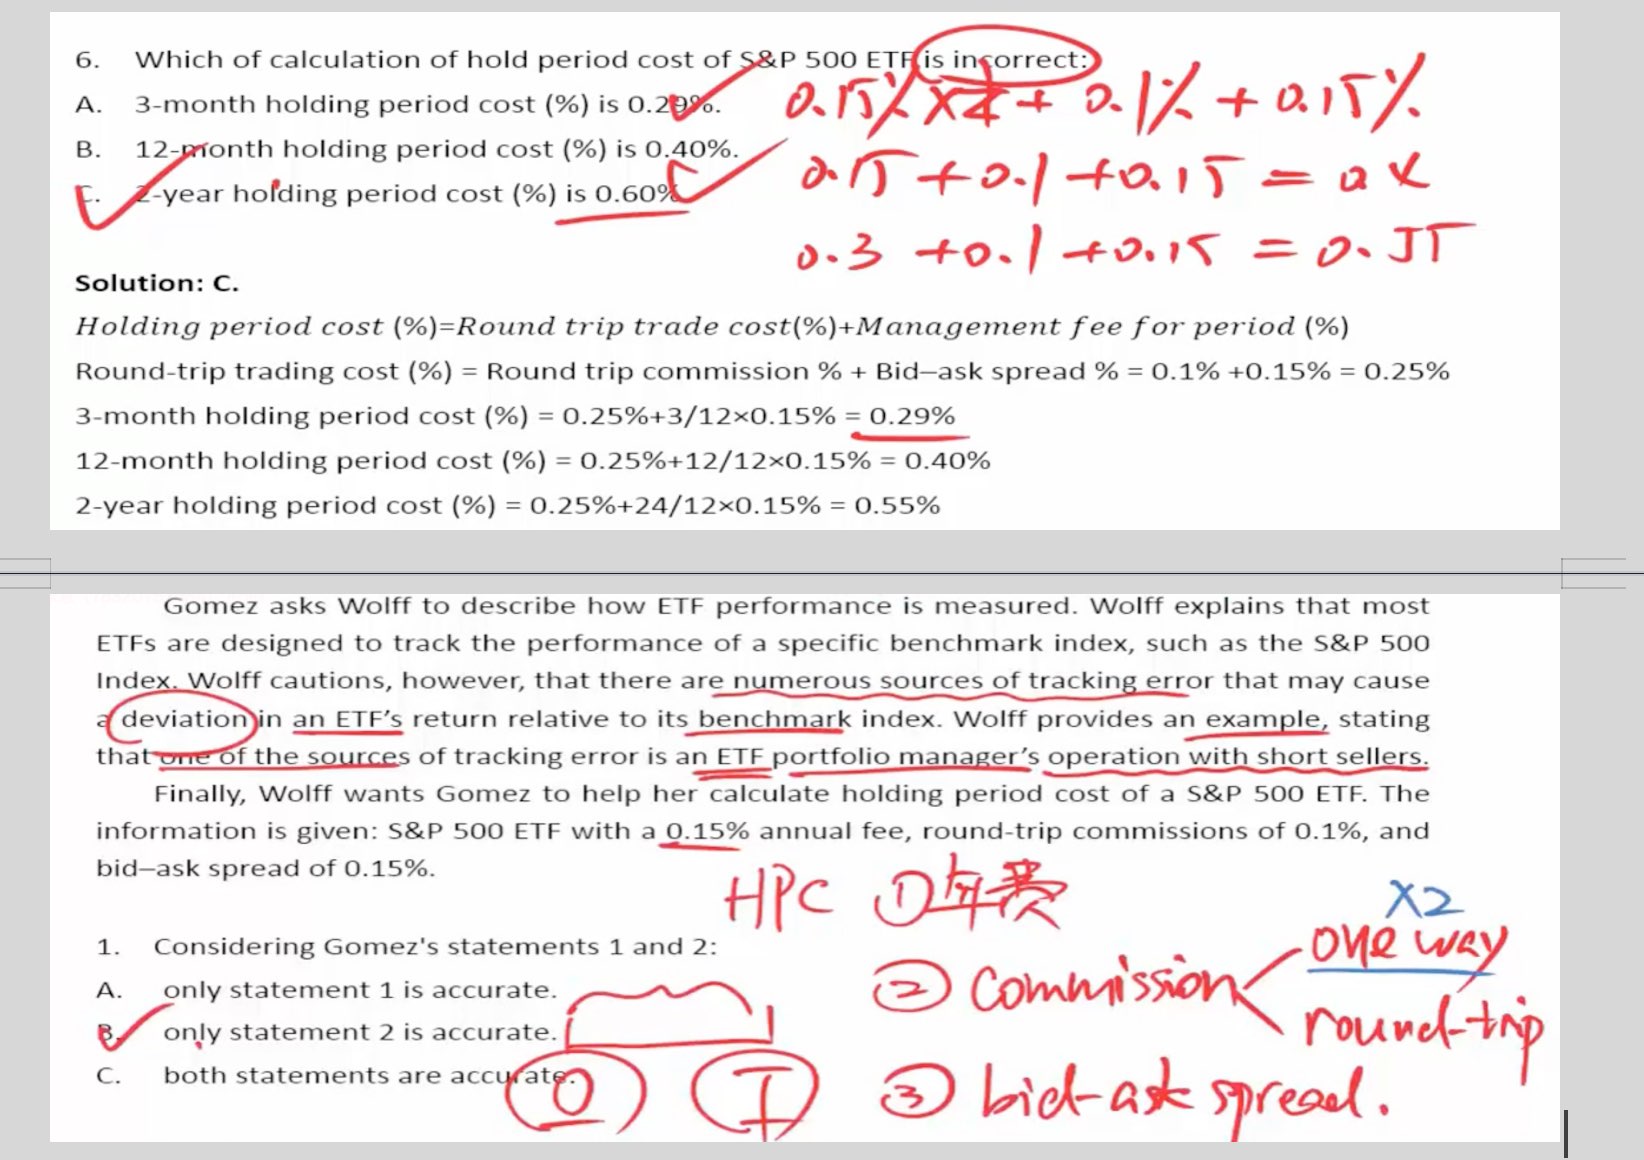 6. Which of calculation of hold period cost of S&P 500 ETF is incorrect:
A. 3-month holding period cost (%) is 0.29%.
0.15% × + 0.1% + 0.15%
B. 12-month holding period cost (%) is 0.40%.
0.15 + 0.1 + 0.15 = 0.4
C. 2-year holding period cost (%) is 0.60%
0.3 + 0.1 + 0.15 = 0.55
Solution: C.
Holding period cost (%)=Round trip trade cost(%)+Management fee for period (%)
Round-trip trading cost (%) = Round trip commission % + Bid–ask spread % = 0.1% +0.15% = 0.25%
3-month holding period cost (%) = 0.25%+3/12×0.15% = 0.29%
12-month holding period cost (%) = 0.25%+12/12×0.15% = 0.40%
2-year holding period cost (%) = 0.25%+24/12×0.15% = 0.55%
Gomez asks Wolff to describe how ETF performance is measured. Wolff explains that most
ETFs are designed to track the performance of a specific benchmark index, such as the S&P 500
Index. Wolff cautions, however, that there are numerous sources of tracking error that may cause
a deviation in an ETF’s return relative to its benchmark index. Wolff provides an example, stating
that one of the sources of tracking error is an ETF portfolio manager’s operation with short sellers.
Finally, Wolff wants Gomez to help her calculate holding period cost of a S&P 500 ETF. The
information is given: S&P 500 ETF with a 0.15% annual fee, round-trip commissions of 0.1%, and
bid–ask spread of 0.15%.
HPC ① 年费
×2
1. Considering Gomez's statements 1 and 2:
one way
A. only statement 1 is accurate.
② Commission
B. only statement 2 is accurate.
round-trip
C. both statements are accurate.
O I
③ bid-ask spread.